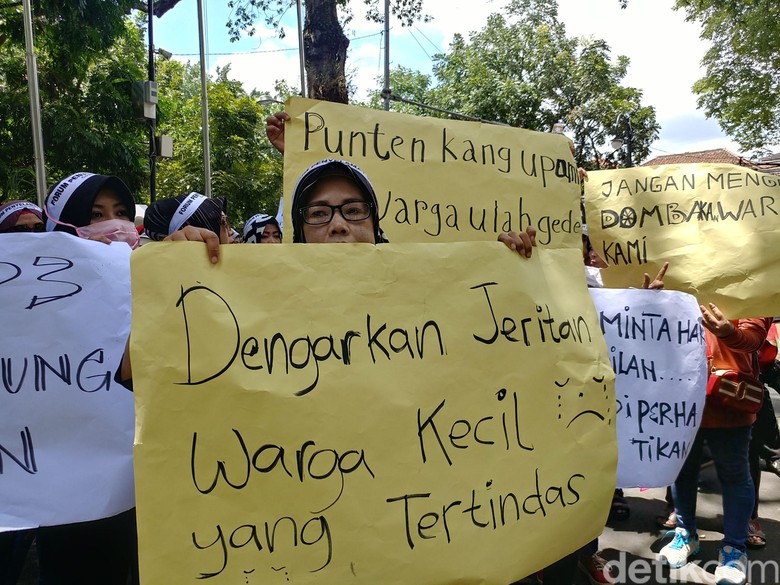 FORUM
FORUM
Punten kang upami
warga ulah gede
JANGAN MENG
DOMBAKAN WAR
KAMI
P3
UNG
N
Dengarkan Jeritan
Warga Kecil
yang Tertindas
MINTA HA
ILAH.....
DIPERHA
TIKAN
detikcom